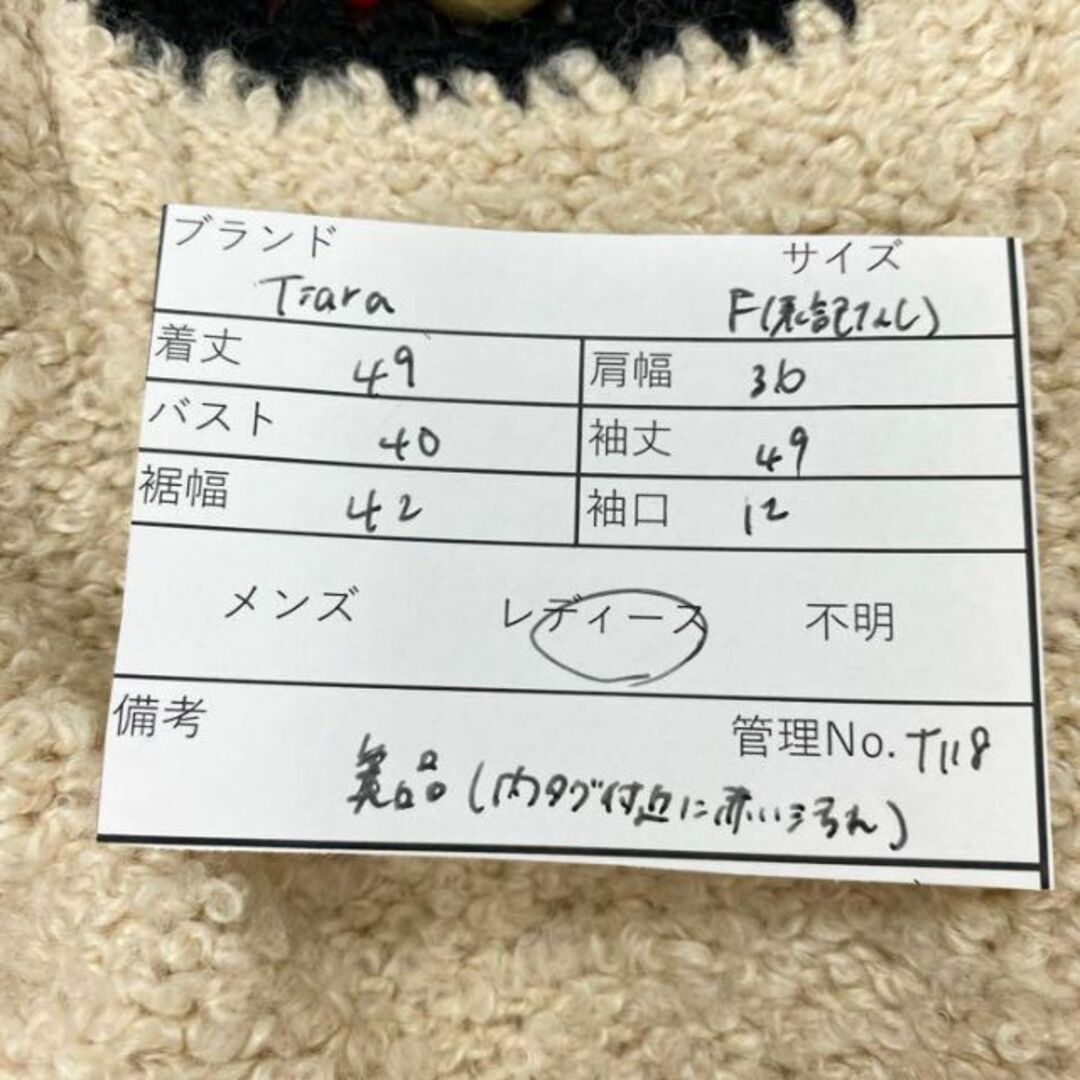 ブランド サイズ
Tiara F(表記なし)
着丈 49 肩幅 36
バスト 40 袖丈 49
裾幅 42 袖口 12
メンズ レディース 不明
備考 管理No. T118
美品(内タグ付近に赤い汚れ)